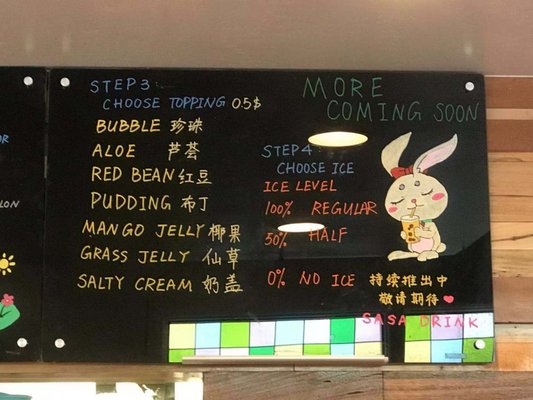 STEP3:
CHOOSE TOPPING 0.5$
BUBBLE 珍珠
ALOE 芦荟
RED BEAN 红豆
PUDDING 布丁
MANGO JELLY 椰果
GRASS JELLY 仙草
SALTY CREAM 奶盖
STEP4:
CHOOSE ICE
ICE LEVEL
100% REGULAR
50% HALF
0% NO ICE
MORE
COMING SOON
持续推出中
敬请期待
SASA DRINK